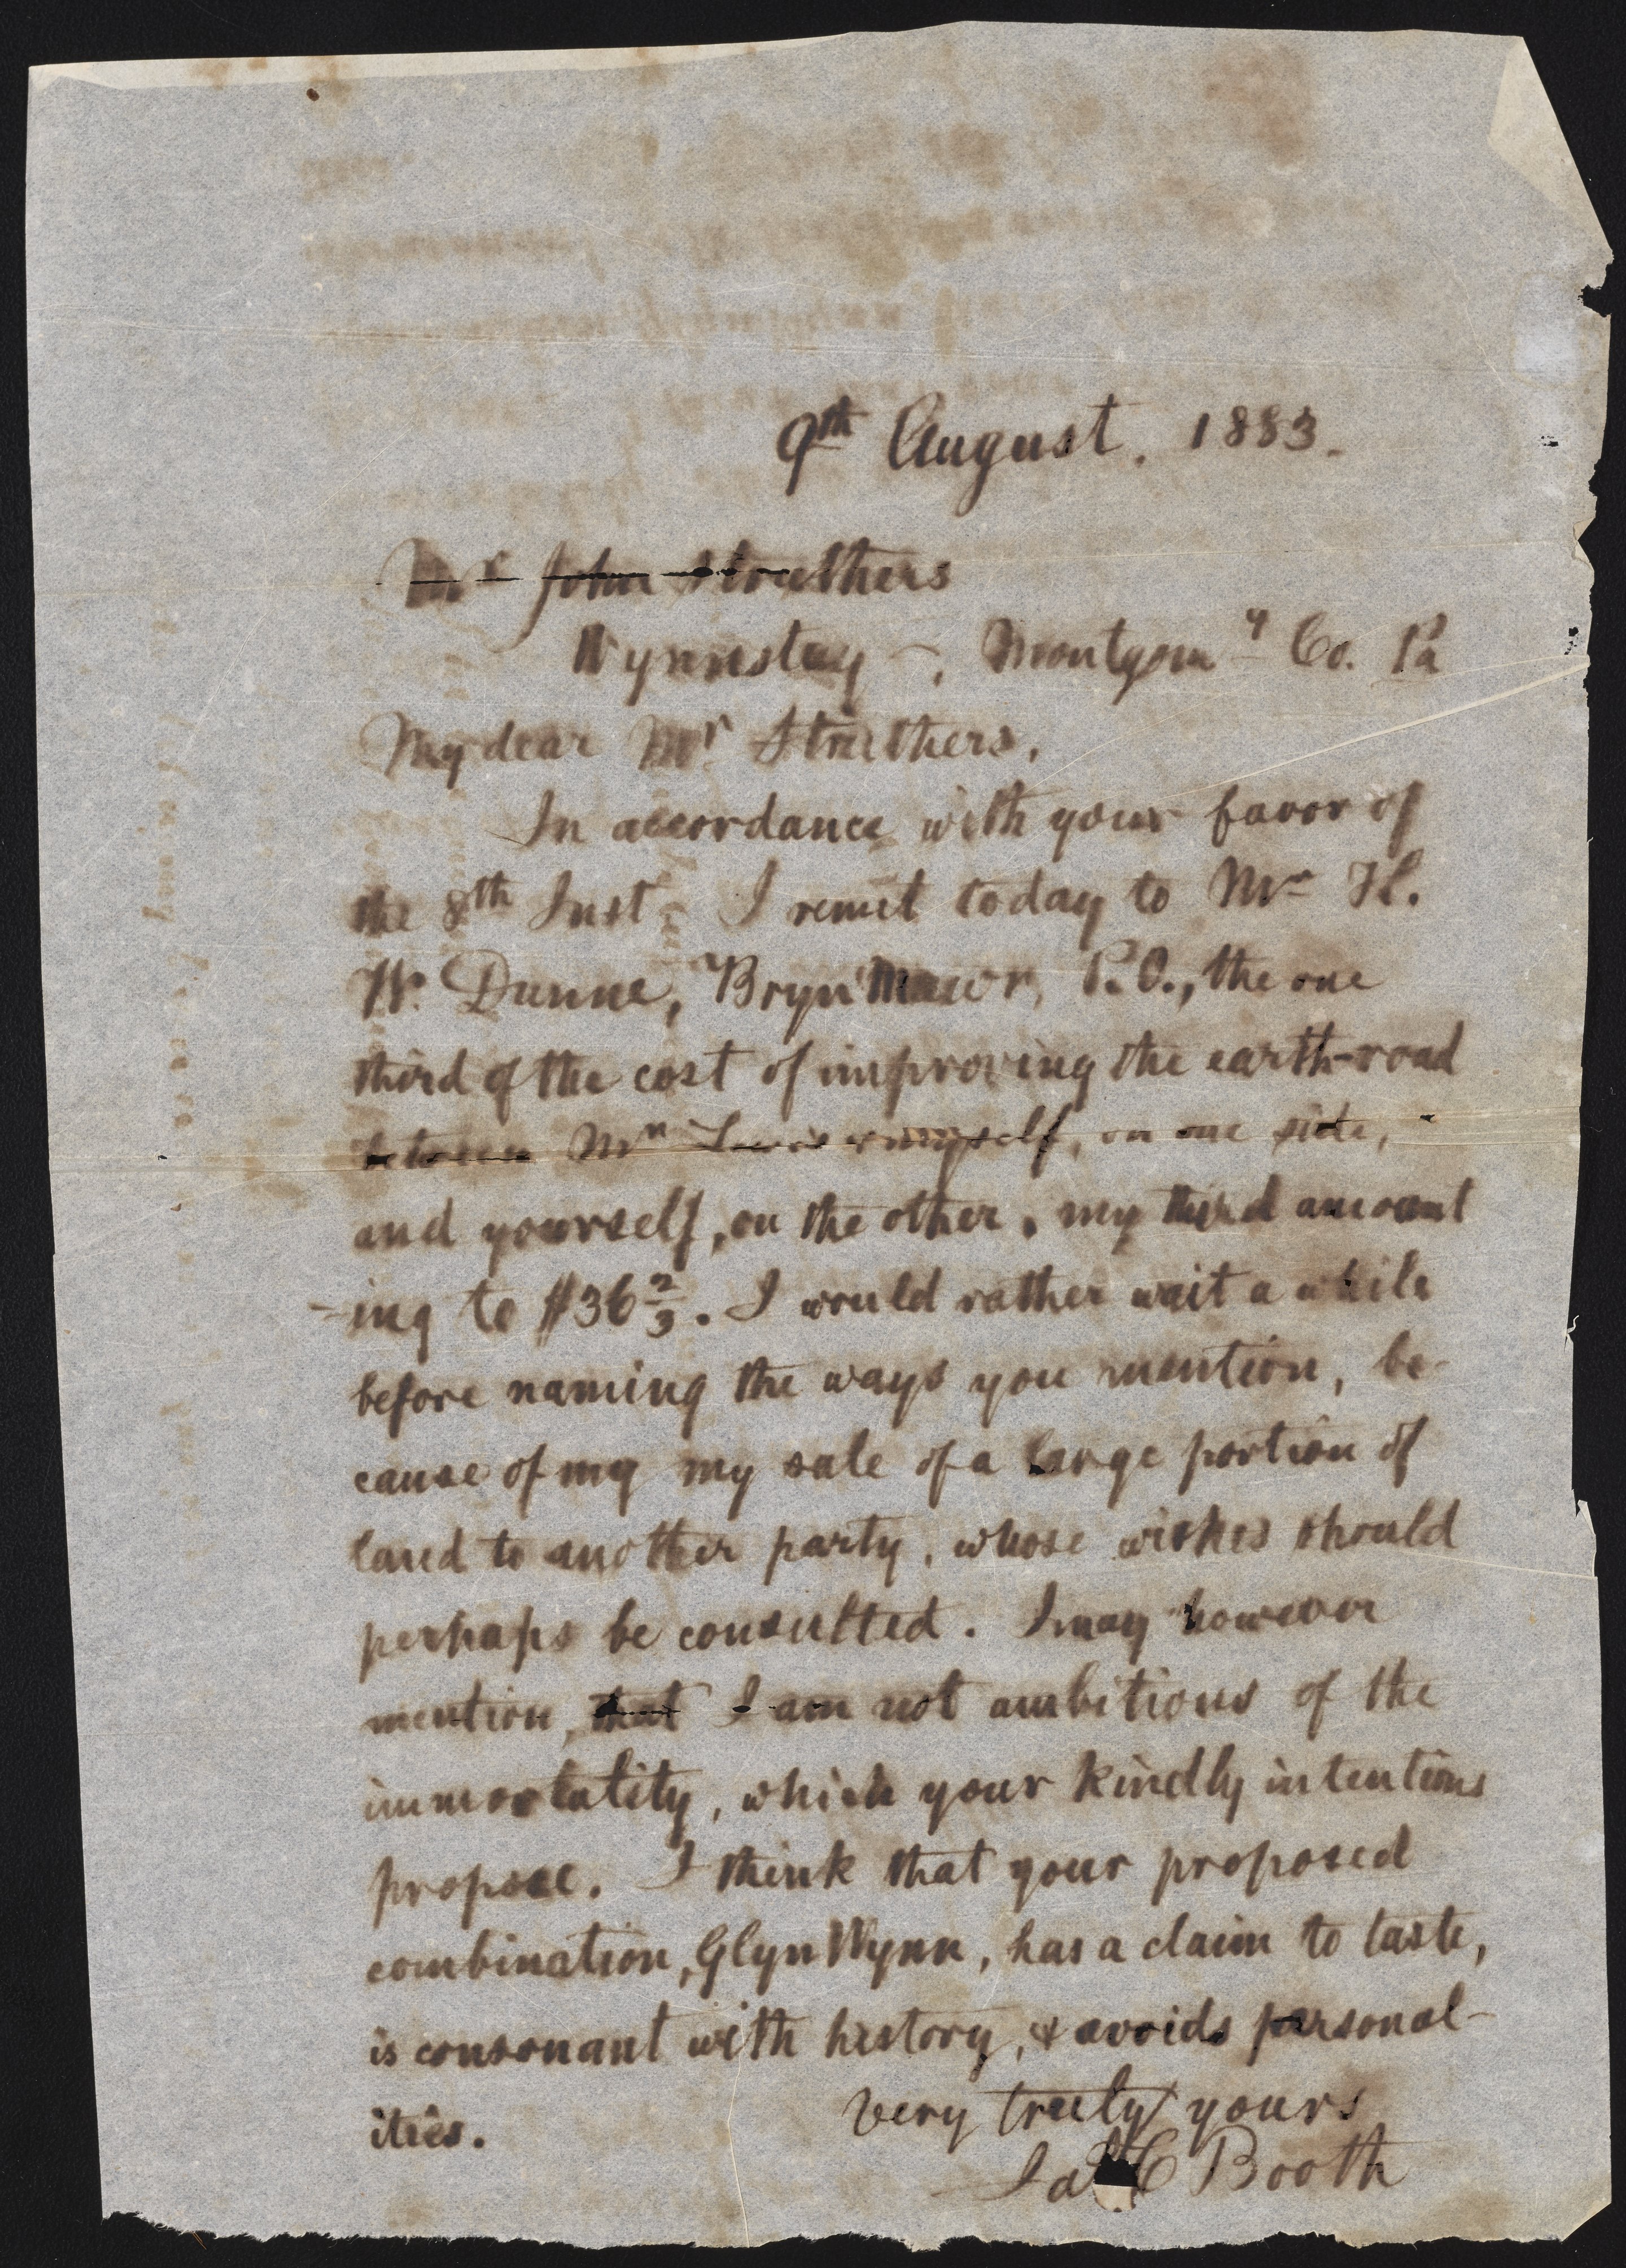 9th August. 1883.
Mr John Struthers
Wynnstay –, Montgomy Co. Pa
My dear Mr Struthers,
In accordance with your favor of
the 8th Inst. I remit today to Mr H.
W. Dunne, Bryn Mawr, P.O., the one
third of the cost of improving the earth-road
between Mr Lewis & myself, on one side,
and yourself, on the other, my third amount
-ing to $36 2/3. I would rather wait a while
before naming the ways you mention, be-
cause of my my sale of a large portion of
land to another party, whose wishes should
perhaps be consulted. I may however
mention, that I am not ambitious of the
immortality, which your kindly intentions
propose. I think that your proposed
combination, Glyn Wynn, has a claim to taste,
is consonant with history, & avoids personal-
ities. Very truly yours
Jas C Booth